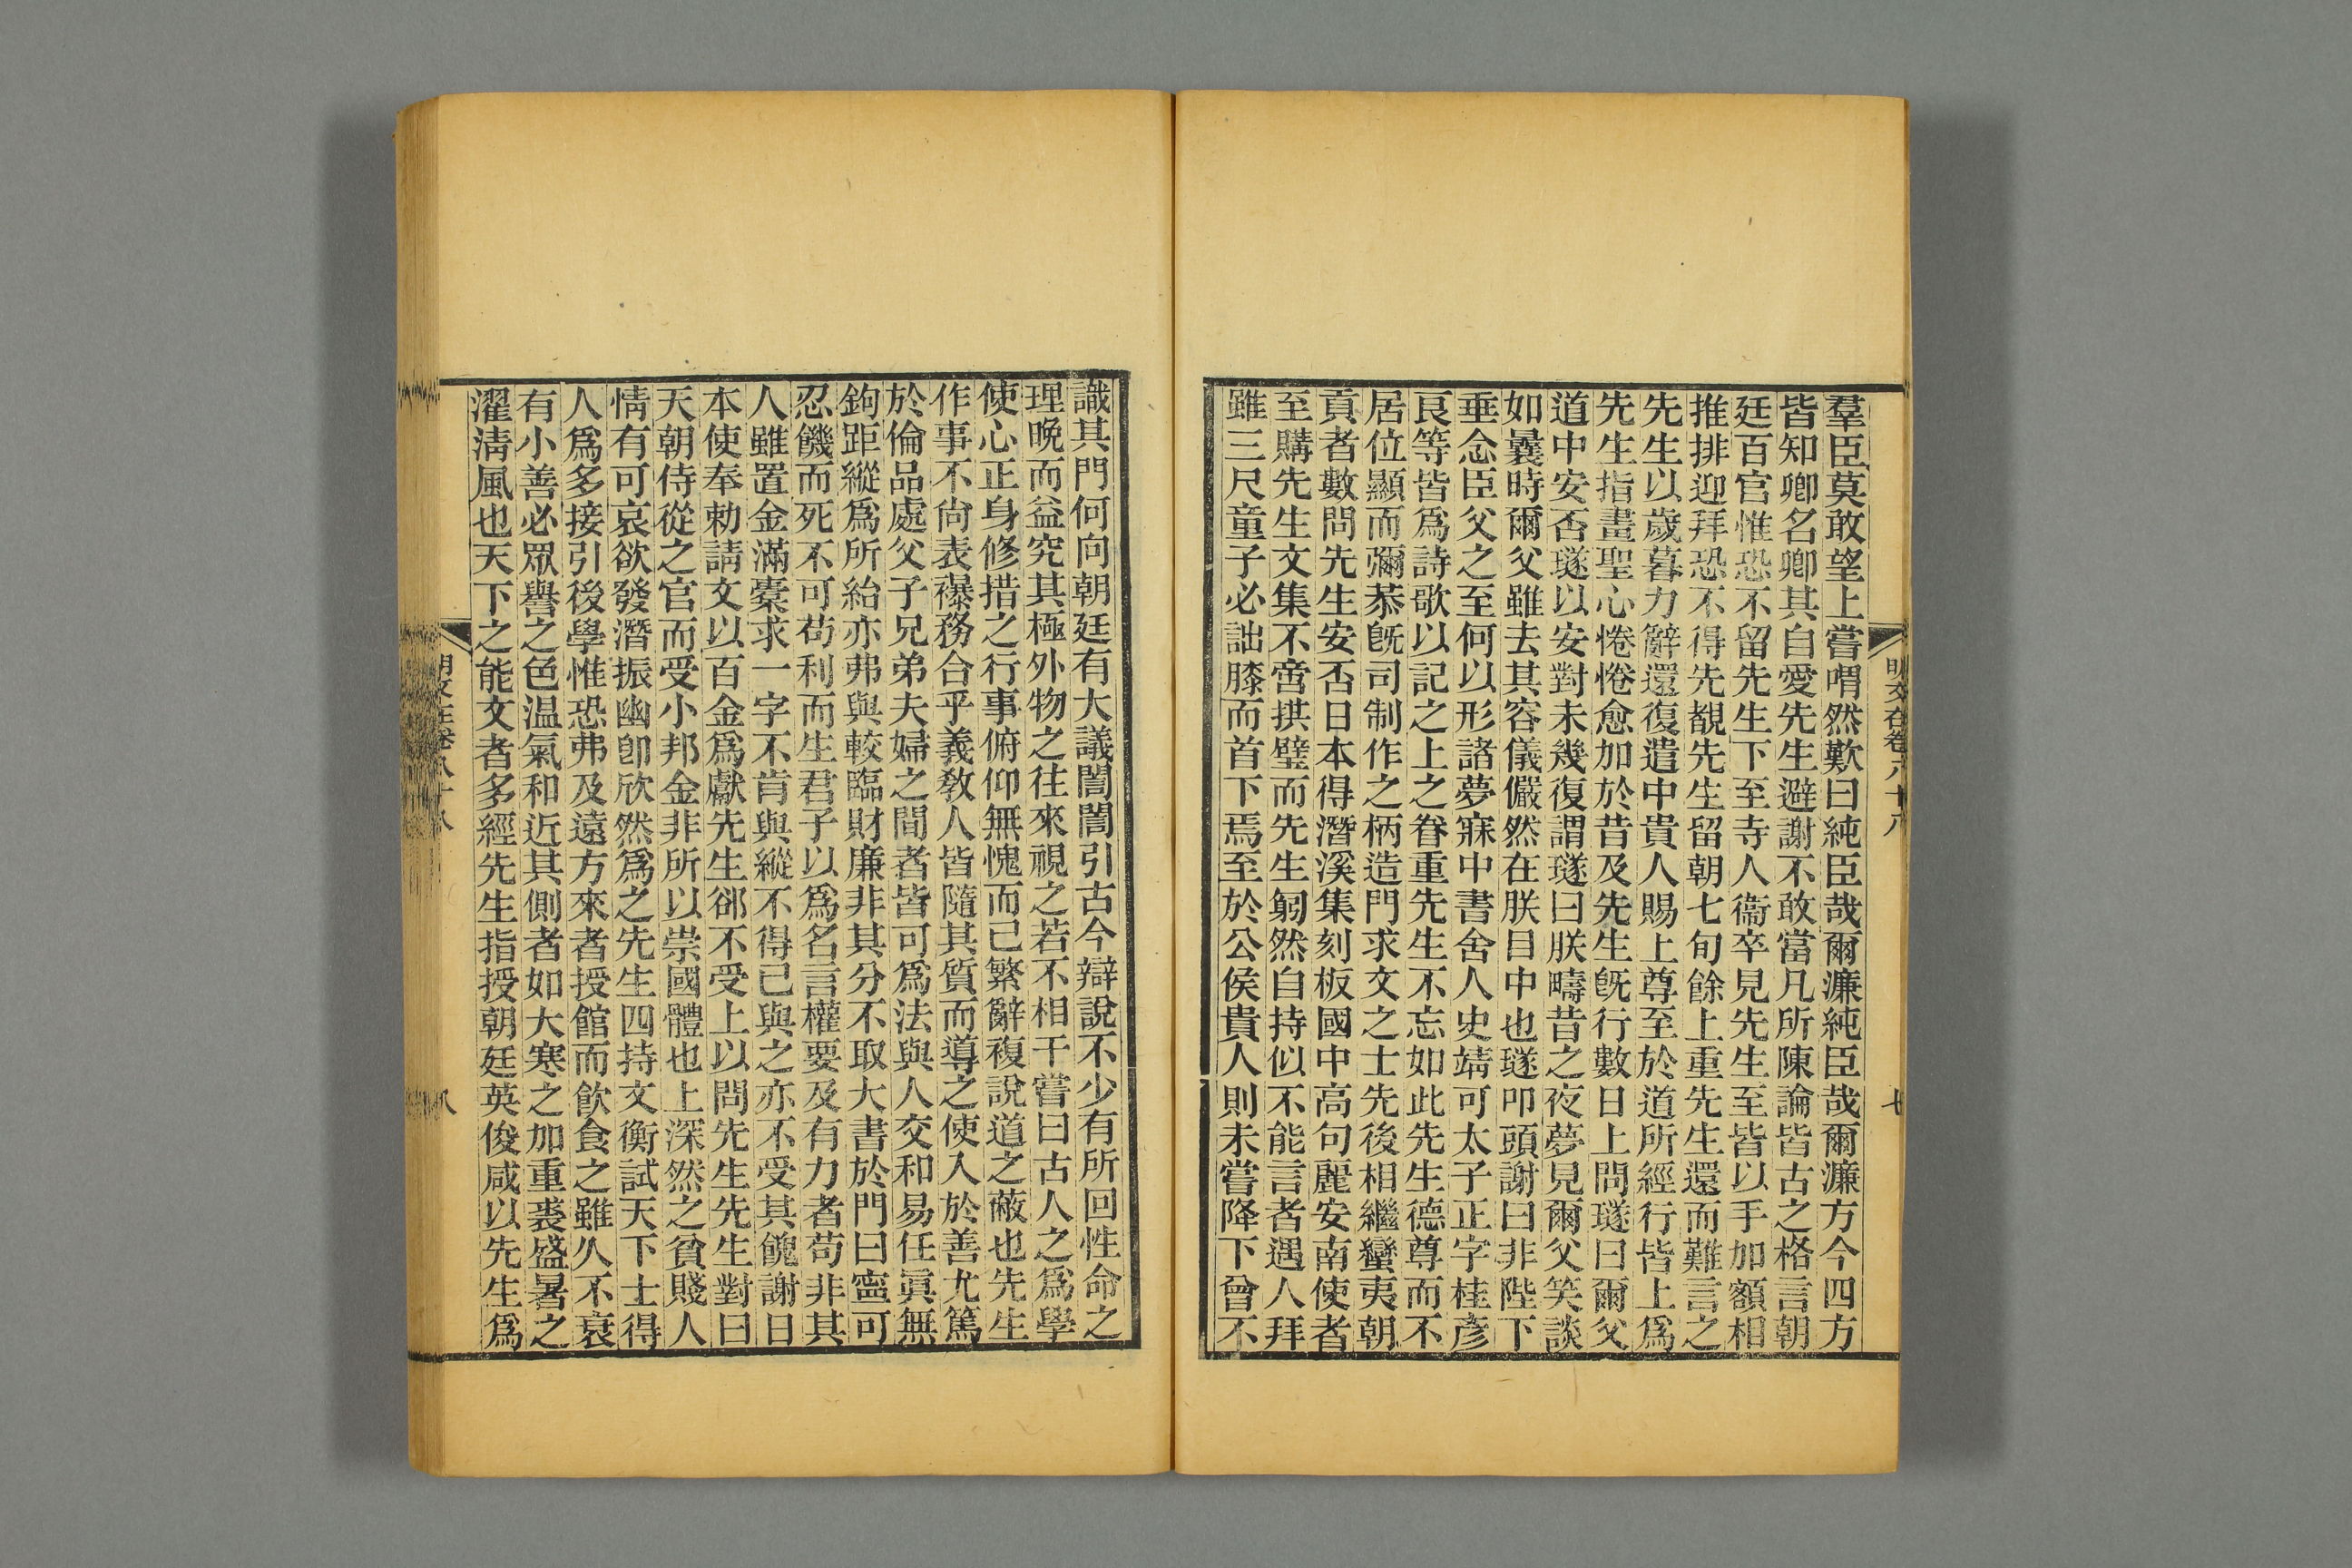 羣臣莫敢望上嘗喟然歎曰純臣哉爾濂純臣哉爾濂方今四方
皆知卿名卿其自愛先生避謝不敢當凡所陳論皆古之格言朝
廷百官惟恐不留先生下至寺人衞卒見先生至皆以手加額相
推排迎拜恐不得先覩先生留朝七旬餘上重先生還而難言之
先生以歲暮力辭還復遣中貴人賜上尊至於道所經行皆上爲
先生指畫聖心惓惓愈加於昔及先生旣行數日上問璲曰爾父
道中安否璲以安對未幾復謂璲曰朕疇昔之夜夢見爾父笑談
如曩時爾父雖去其容儀儼然在朕目中也璲叩頭謝曰非陛下
垂念臣父之至何以形諸夢寐中書舍人史靖可太子正字桂彥
良等皆爲詩歌以記之上之眷重先生不忘如此先生德尊而不
居位顯而彌恭旣司制作之柄造門求文之士先後相繼蠻夷朝
貢者數問先生安否日本得潛溪集刻板國中高句麗安南使者
至購先生文集不啻拱璧而先生躬然自持似不能言者遇人拜
雖三尺童子必詘膝而首下焉至於公侯貴人則未嘗降下曾不
明文在卷六十八
七
識其門何向朝廷有大議誾誾引古今辯說不少有所回性命之
理晚而益究其極外物之往來視之若不相干嘗曰古人之爲學
使心正身修措之行事俯仰無愧而已繁辭複說道之蔽也先生
作事不尙表襮務合乎義敎人皆隨其質而導之使入於善尤篤
於倫品處父子兄弟夫婦之間者皆可爲法與人交和易任眞無
鉤距縱爲所紿亦弗與較臨財廉非其分不取大書於門曰寧可
忍饑而死不可苟利而生君子以爲名言權要及有力者苟非其
人雖置金滿橐求一字不肯與縱不得已與之亦不受其餽謝日
本使奉勅請文以百金爲獻先生郤不受上以問先生先生對曰
天朝侍從之官而受小邦金非所以崇國體也上深然之貧賤人
情有可哀欲發潛振幽卽欣然爲之先生四持文衡試天下士得
人爲多接引後學惟恐弗及遠方來者授館而飮食之雖久不衰
有小善必眾譽之色温氣和近其側者如大寒之加重裘盛暑之
濯淸風也天下之能文者多經先生指授朝廷英俊咸以先生爲
八